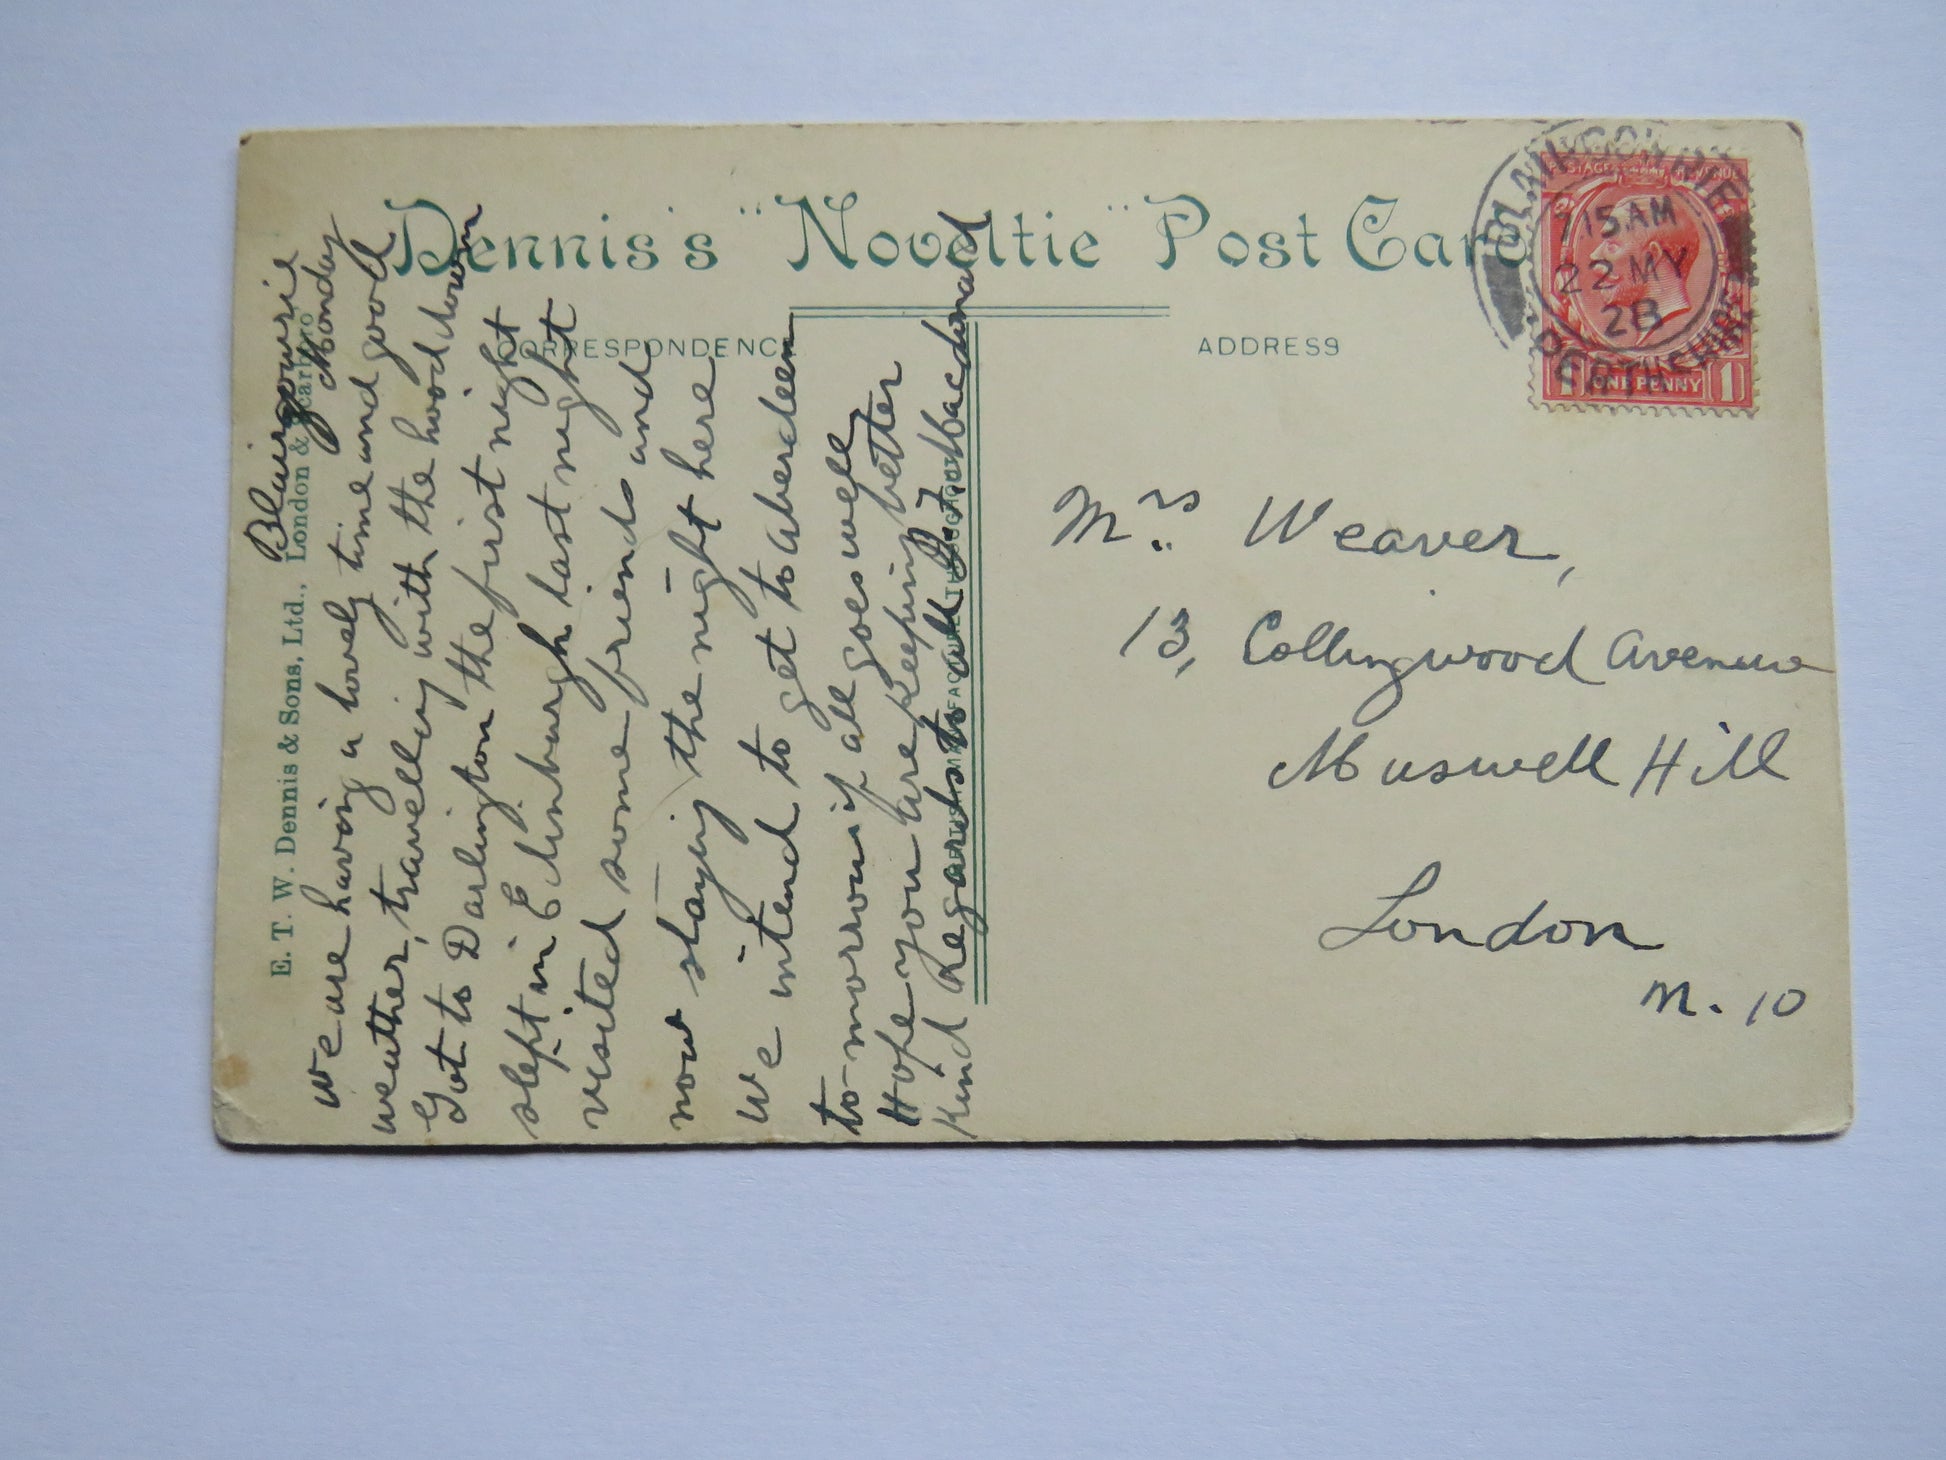 Dennis's "Noveltie" Post Card
CORRESPONDENCE
ADDRESS
E. T. W. Dennis & Sons, Ltd., London & Scarboro'
BRITISH MANUFACTURE THROUGHOUT
Blairgowrie
Monday
We are having a lovely time and good
weather, travelling with the hood down
Got to Darlington the first night
slept in Edinburgh last night
visited some friends and
now staying the night here
We intend to get to Aberdeen
to-morrow if all goes well
Hope you are keeping better
Kind Regards to all
Macdonald
Mrs Weaver,
13, Collingwood Avenue
Muswell Hill
London
N. 10
BLAIRGOWRIE
7 15 AM
22 MY
28
PERTHSHIRE
POSTAGE REVENUE
1 ONE PENNY 1